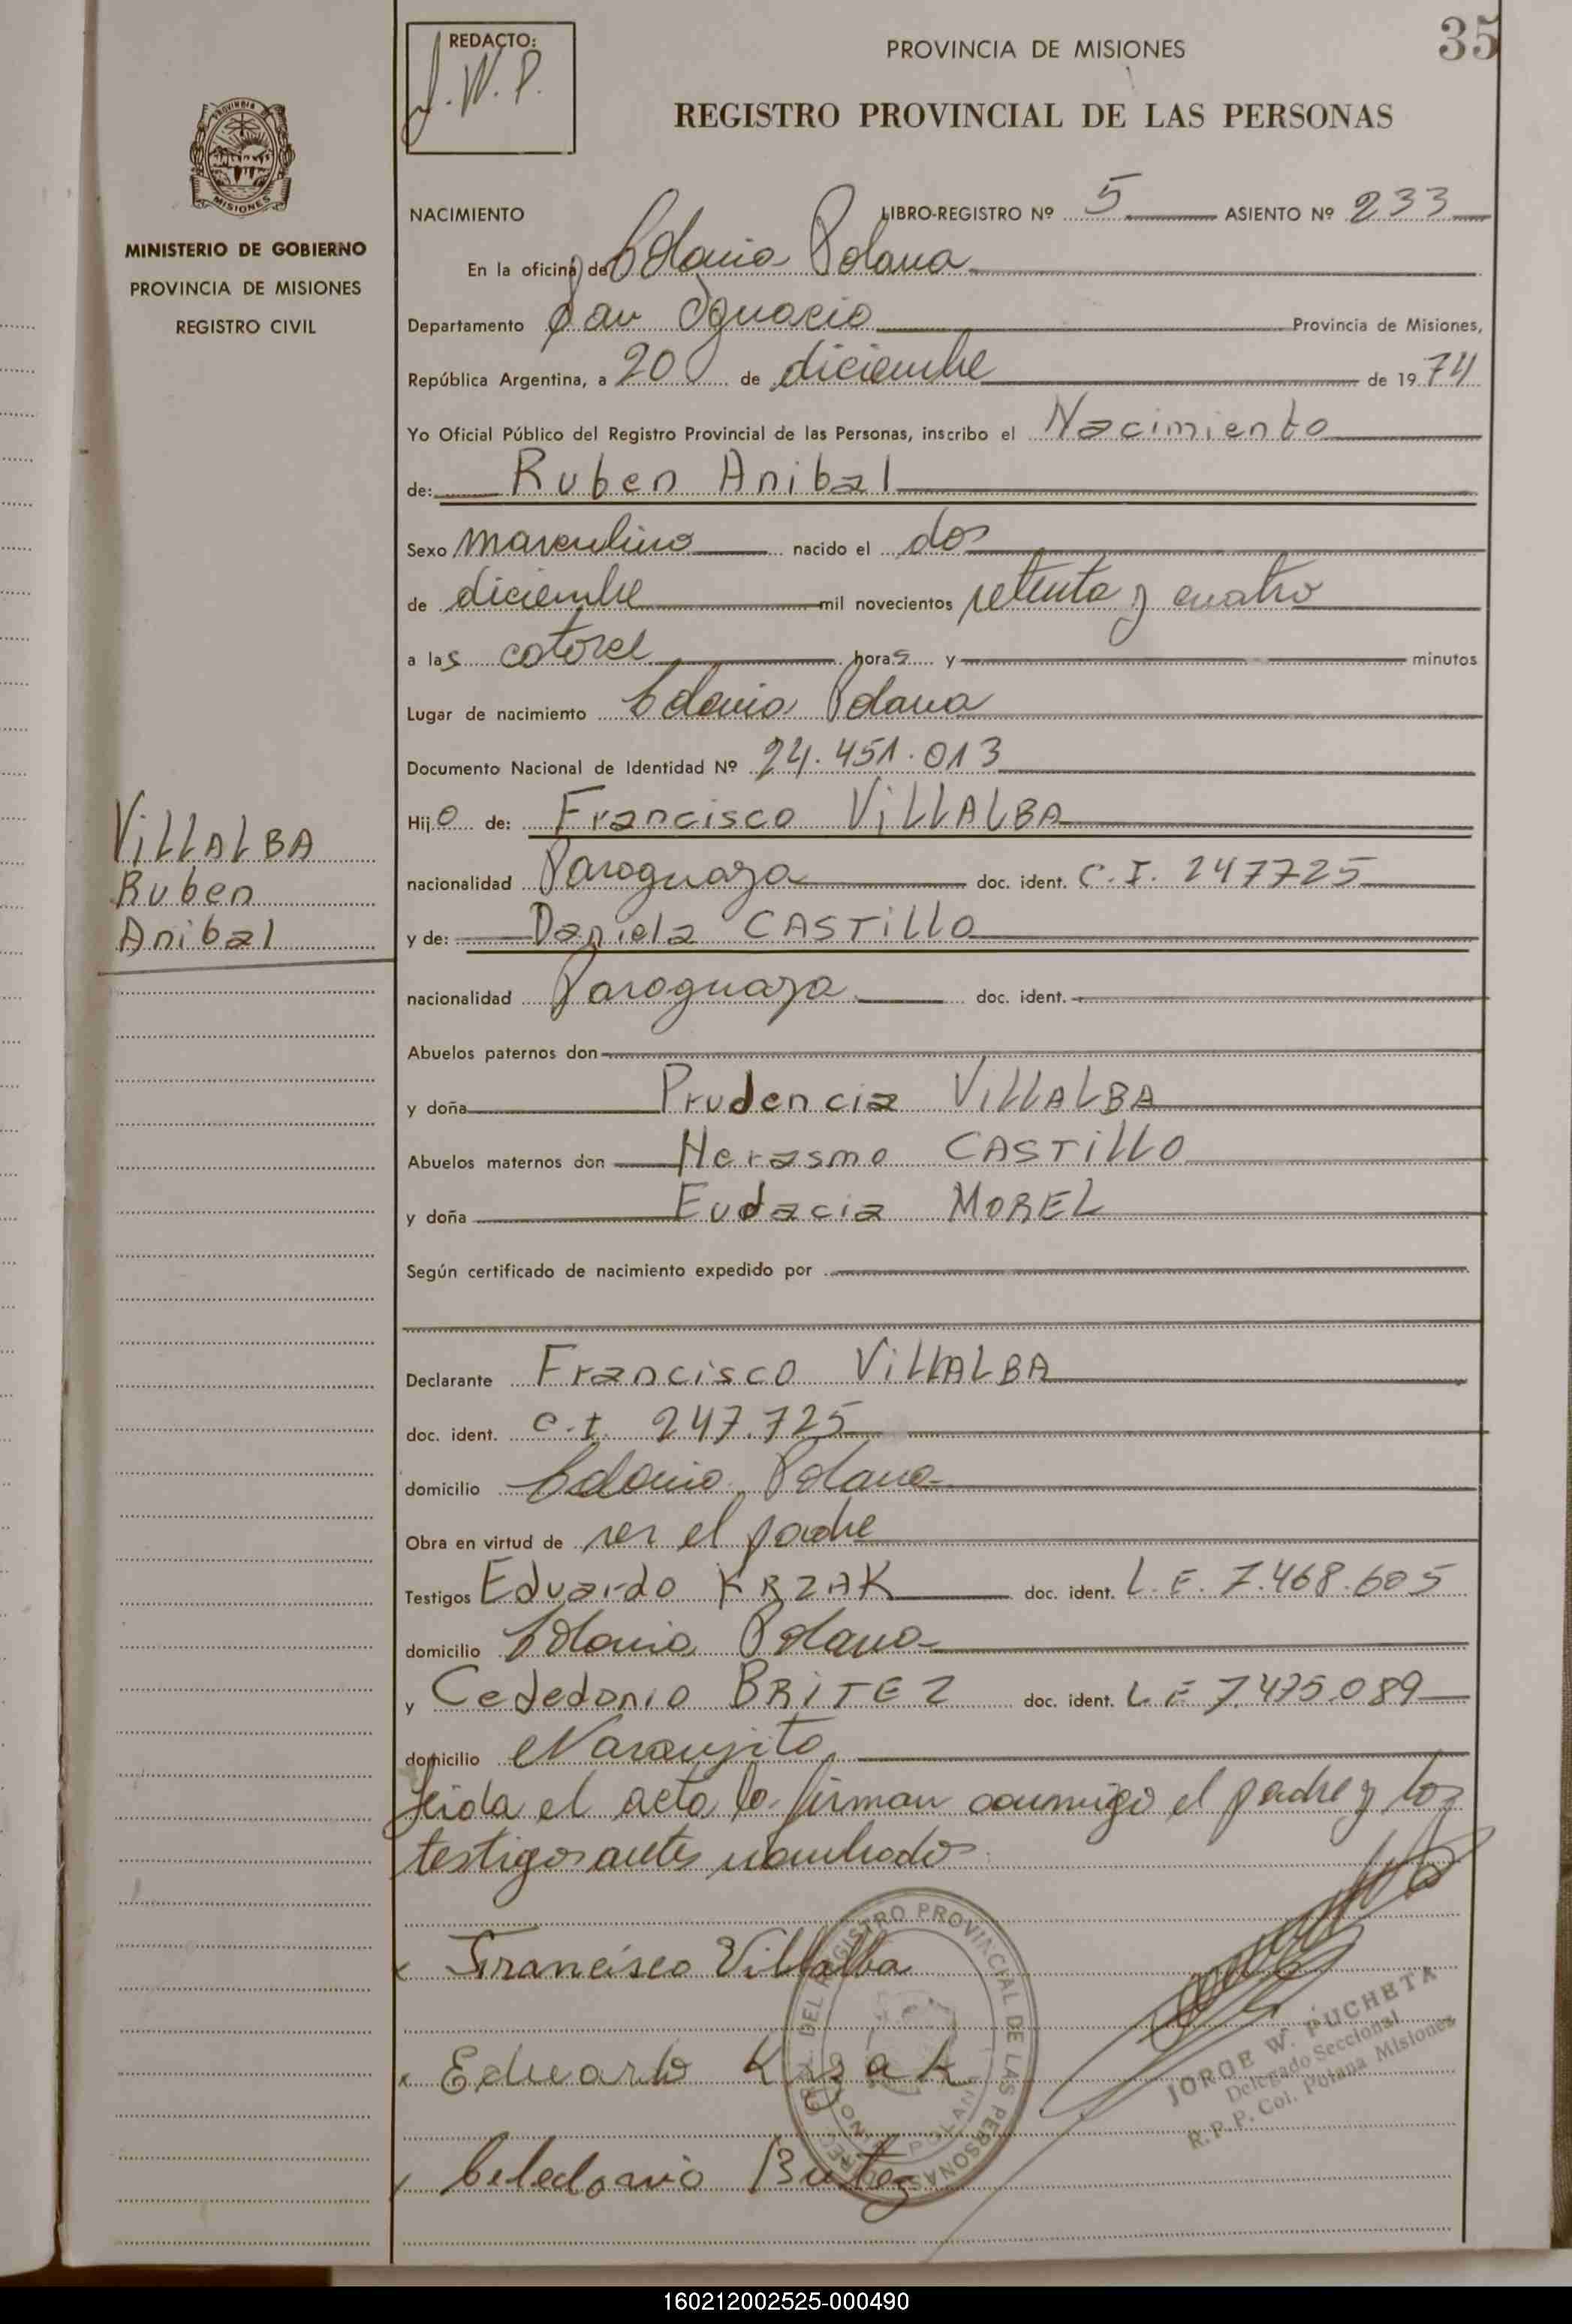 REDACTO:
J.W.P.
PROVINCIA DE MISIONES
35
REGISTRO PROVINCIAL DE LAS PERSONAS
PROVINCIA
MISIONES
MINISTERIO DE GOBIERNO
PROVINCIA DE MISIONES
REGISTRO CIVIL
NACIMIENTO LIBRO-REGISTRO Nº 5 ASIENTO Nº 233
En la oficina de Colonia Polana
Departamento San Ignacio Provincia de Misiones,
República Argentina, a 20 de diciembre de 1974
Yo Oficial Público del Registro Provincial de las Personas, inscribo el Nacimiento
de: Ruben Anibal
Sexo masculino nacido el dos
de diciembre mil novecientos setenta y cuatro
a las catorce horas y minutos
Lugar de nacimiento Colonia Polana
Documento Nacional de Identidad Nº 24.451.013
Hijo de: Francisco ViLLALBA
nacionalidad Paraguaya doc. ident. C.I. 247725
y de: Daniela CASTiLLO
nacionalidad Paraguaya doc. ident.
Abuelos paternos don
y doña Prudencia ViLLALBA
Abuelos maternos don Herasmo CASTiLLO
y doña Eudacia MOREL
Según certificado de nacimiento expedido por
Declarante Francisco ViLLALBA
doc. ident. C.I. 247.725
domicilio Colonia Polana
Obra en virtud de ser el padre
Testigos Eduardo KRZAK doc. ident. L.E. 7.468.605
domicilio Colonia Polana
y Cededonio BRiTEZ doc. ident. L E 7.475.089
domicilio Naranjito
Leida el acta la firman conmigo el padre y los
testigos antes nombrados
ViLLALBA
Ruben
Anibal
x Francisco Villalba
x Eduardo Krzak
x Celedonio Britez
DEL REGISTRO PROVINCIAL DE LAS PERSONAS
JORGE W. PUCHETA
Delegado Seccional
R.P.P. Col. Polana Misiones
160212002525-000490